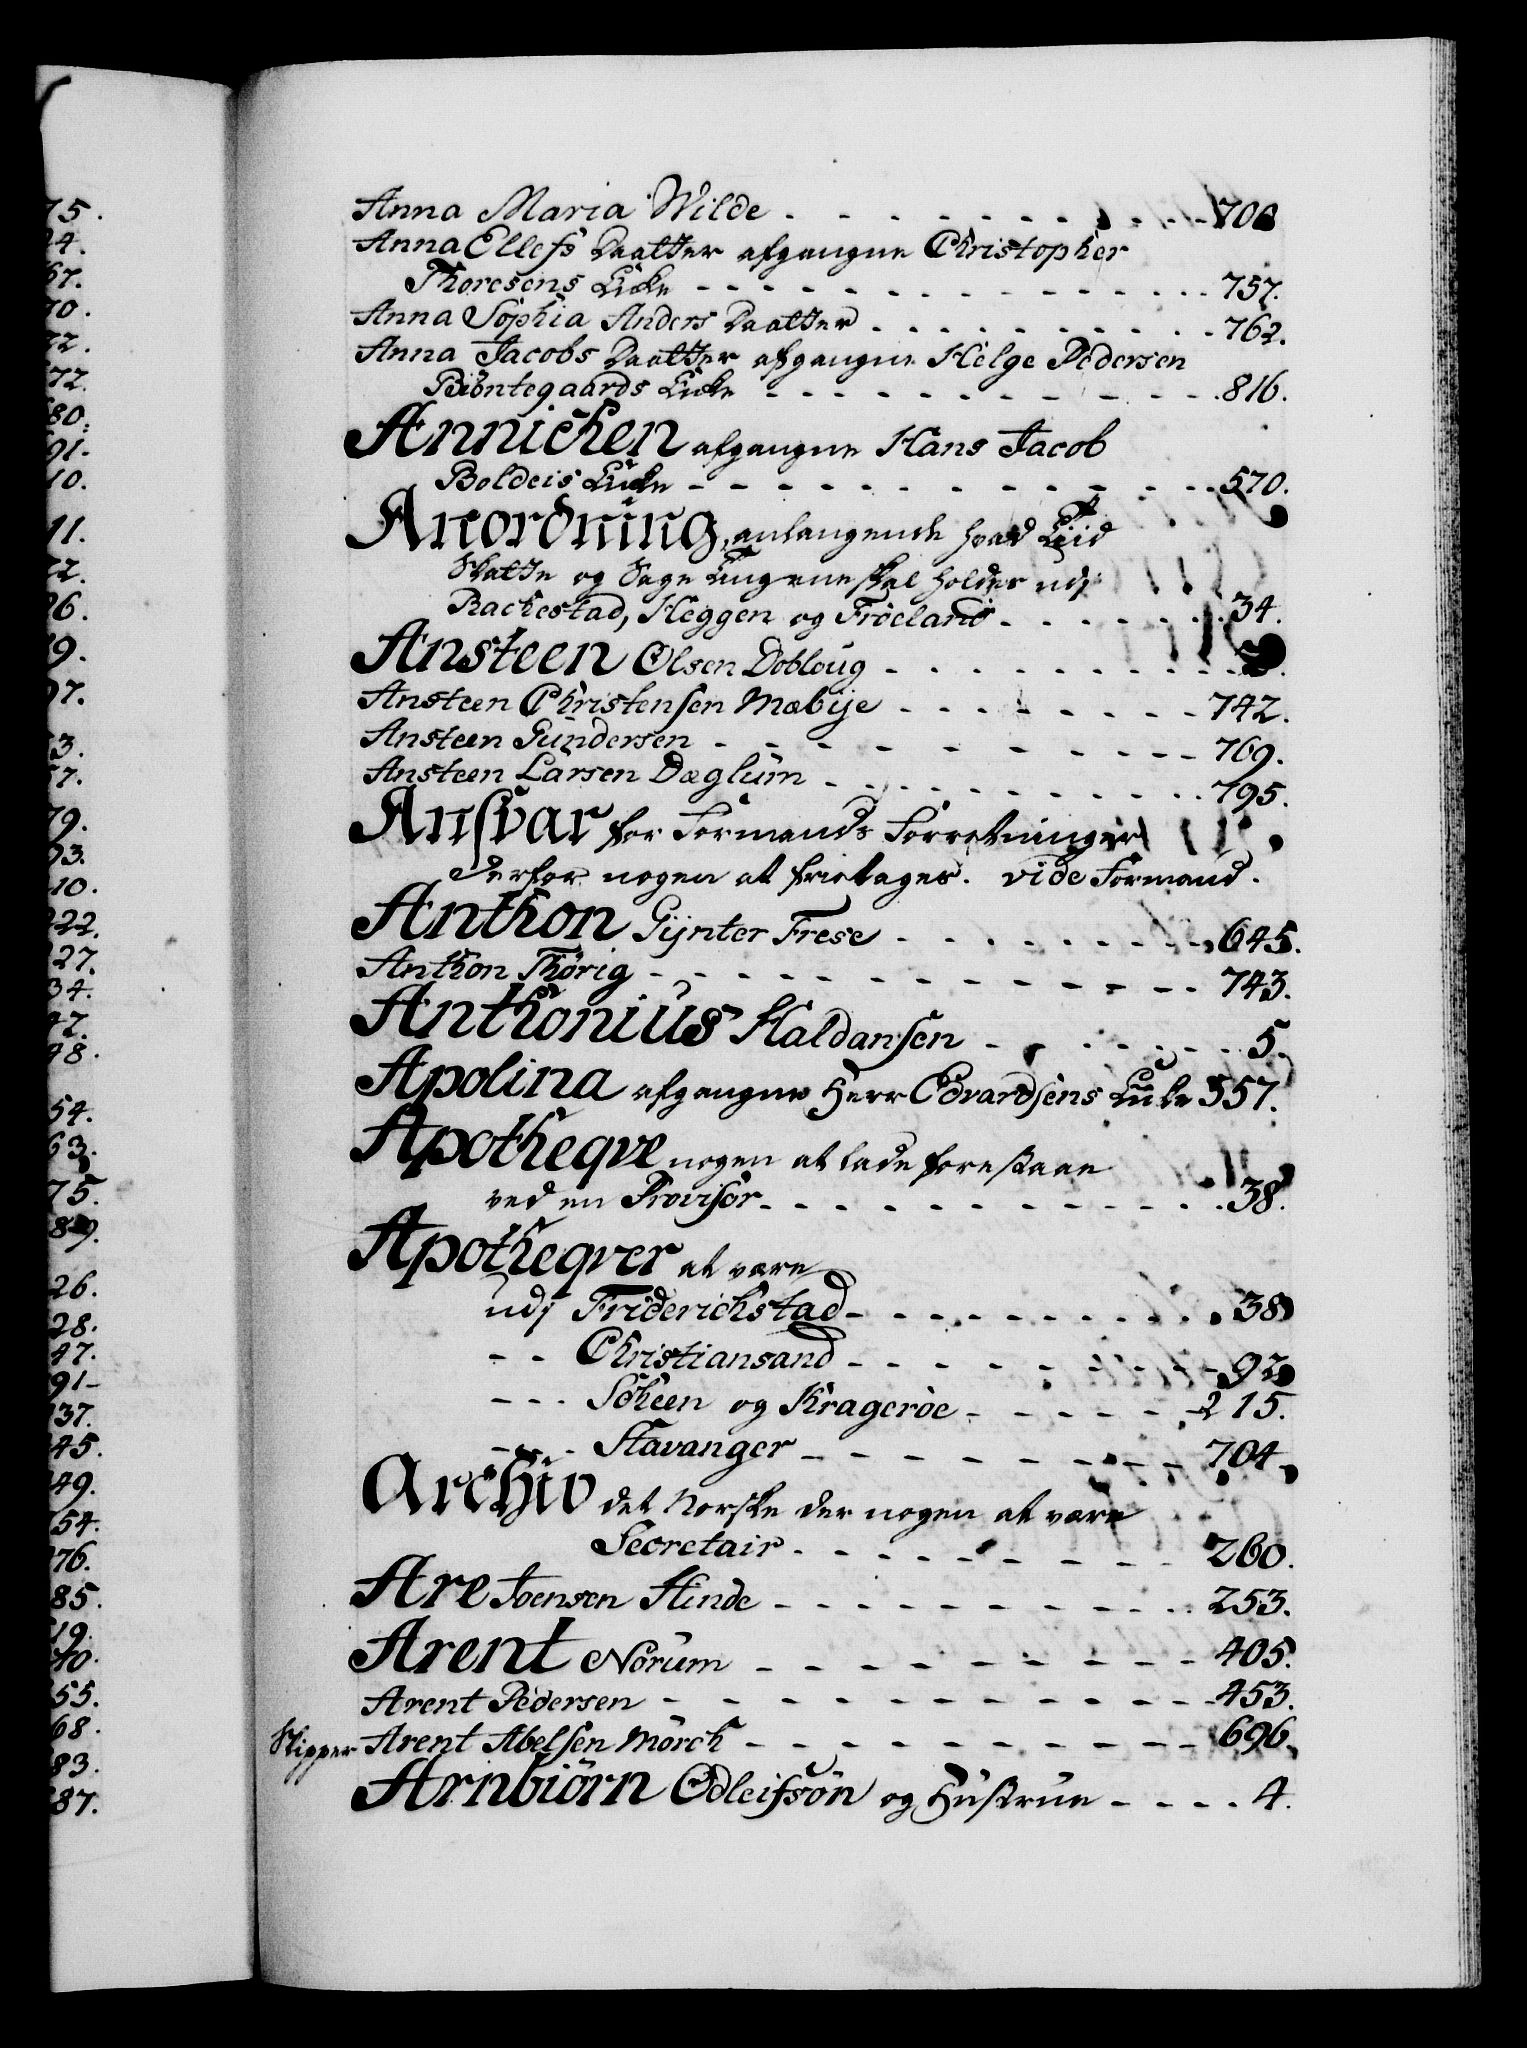 Anna Maria Wilde - - - - - - - - - - 70
Anna Ellefs Daatter afgangne Christopher
Thoresens Encke - - - - - - - - - - 757.
Anna Sophia Anders Daatter - - - - - - - - 762.
Anna Jacobs Daatter afgangne Helge Pedersen
Biöntegaards Encke - - - - - - - - - - 816.
Annichen afgangne Hans Jacob
Boldeis Encke - - - - - - - - - - 570.
Anordning, anlangende hvad Tiid
Skatte og Sage Tingene skal holdes udj
Rackestad, Heggen og Fröeland - - - - - - 34.
Ansteen Olsen Dobloug - - - - - - - -
Ansteen Christensen Mæbÿe - - - - - - - 742.
Ansteen Gundersen - - - - - - - - - - 769.
Ansteen Larsen Dæglum - - - - - - - - 795.
Ansvar for Formands Forretninger
derfor nogen at fritages. vide Formand.
Anthon Gÿnter Frese - - - - - - - - 645.
Anthon Thørig - - - - - - - - - - 743.
Anthonius Haldansen - - - - - - 5.
Apolina afgangne Herr Edvardsens Encke 557.
Apotheqve nogen at lade forestaae
ved en Provisor - - - - - - - - - - 38.
Apotheqver at være
udj Friderichstad - - - - - - - - 38
- - Christiansand - - - - - - - - 92
- - - Scheen og Kragerøe - - - - - 215.
- - - Stavanger - - - - - - - - 704.
Archiv det Norske der nogen at være
Secretair - - - - - - - - 260.
Are Joensen Hinde - - - - - - - - - 253.
Arent Norum - - - - - - - - - 405.
Arent Pedersen - - - - - - - - - - 453.
Skipper Arent Abelsen Mörch - - - - - - - - - 696.
Arnbiörn Odleifsøn og Hustrue - - - - 4.
15.
4.
67.
70.
72.
72.
80.
91.
10.
11.
22.
26.
9.
97.
3.
57.
79.
93.
10.
222.
27.
34.
42.
48.
54.
63.
75.
89.
26.
28.
47.
91-
37.
45.
49.
54.
76.
85.
19.
40.
55.
68.
83.
87.